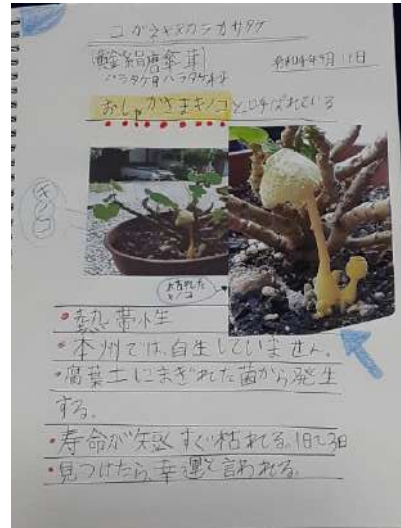 コガネキヌカラカサタケ
(黄金絹唐傘茸)
令和4年9月11日
ハラタケ目ハラタケ科
おしゃかさまキノコと呼ばれている
キノコ
キノコ
・熱帯性
・本州では自生していません。
・腐葉土にまぎれた菌から発生
する。
・寿命が短くすぐ枯れる。1日~3日
・見つけたら幸運と言われる。